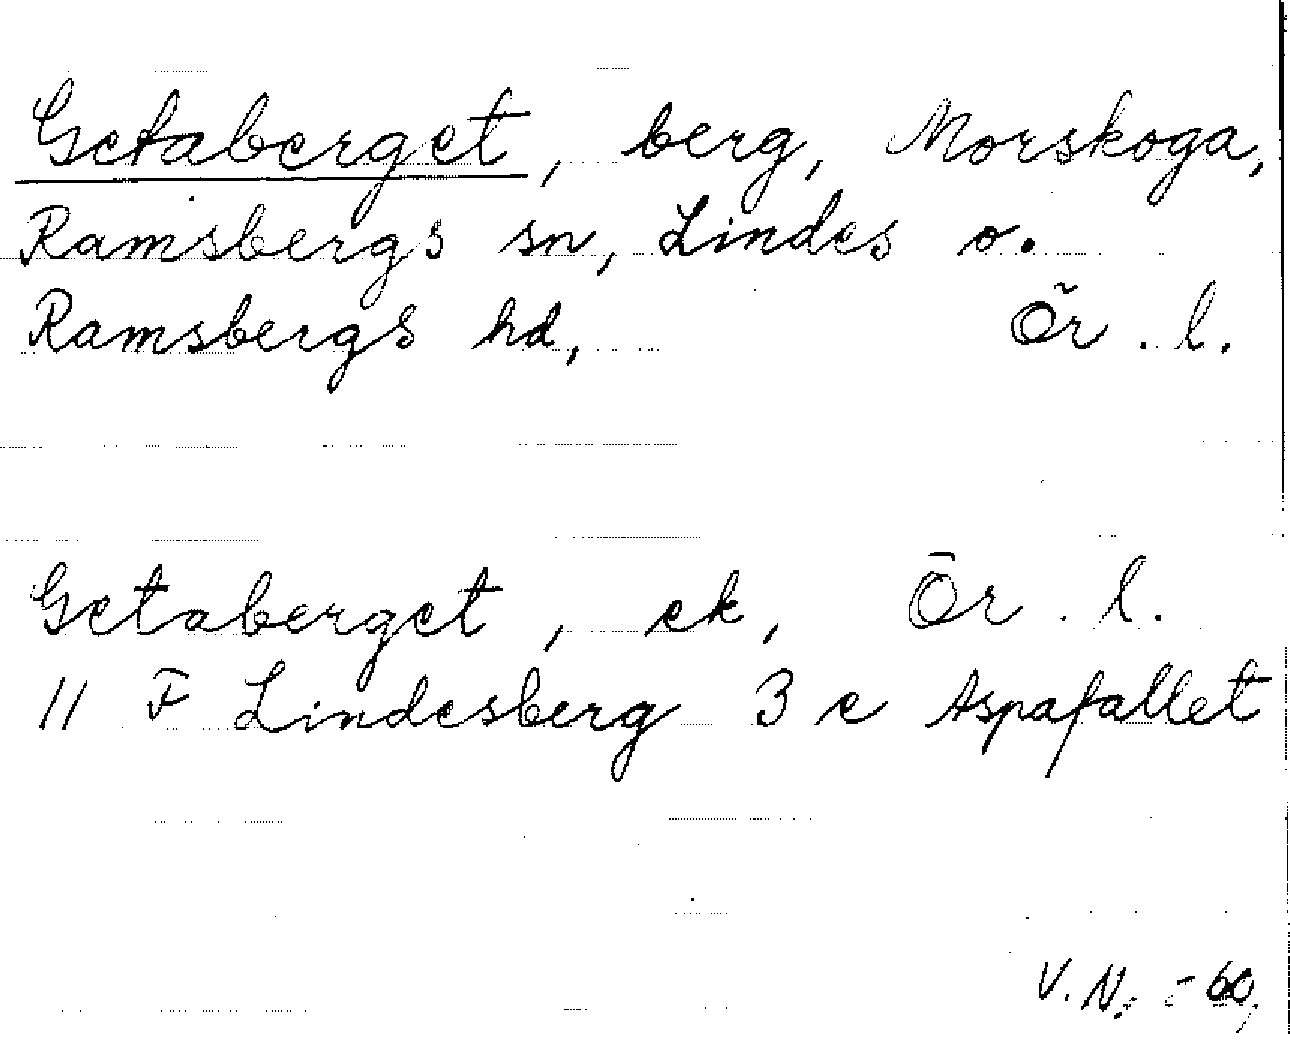 Getaberget, berg, Morskoga,
Ramsbergs sn, Lindes o.
Ramsbergs hd, Ör. l.
Getaberget, ek, Ör. l.
11 F Lindesberg 3 c Aspafallet
V. N. -60